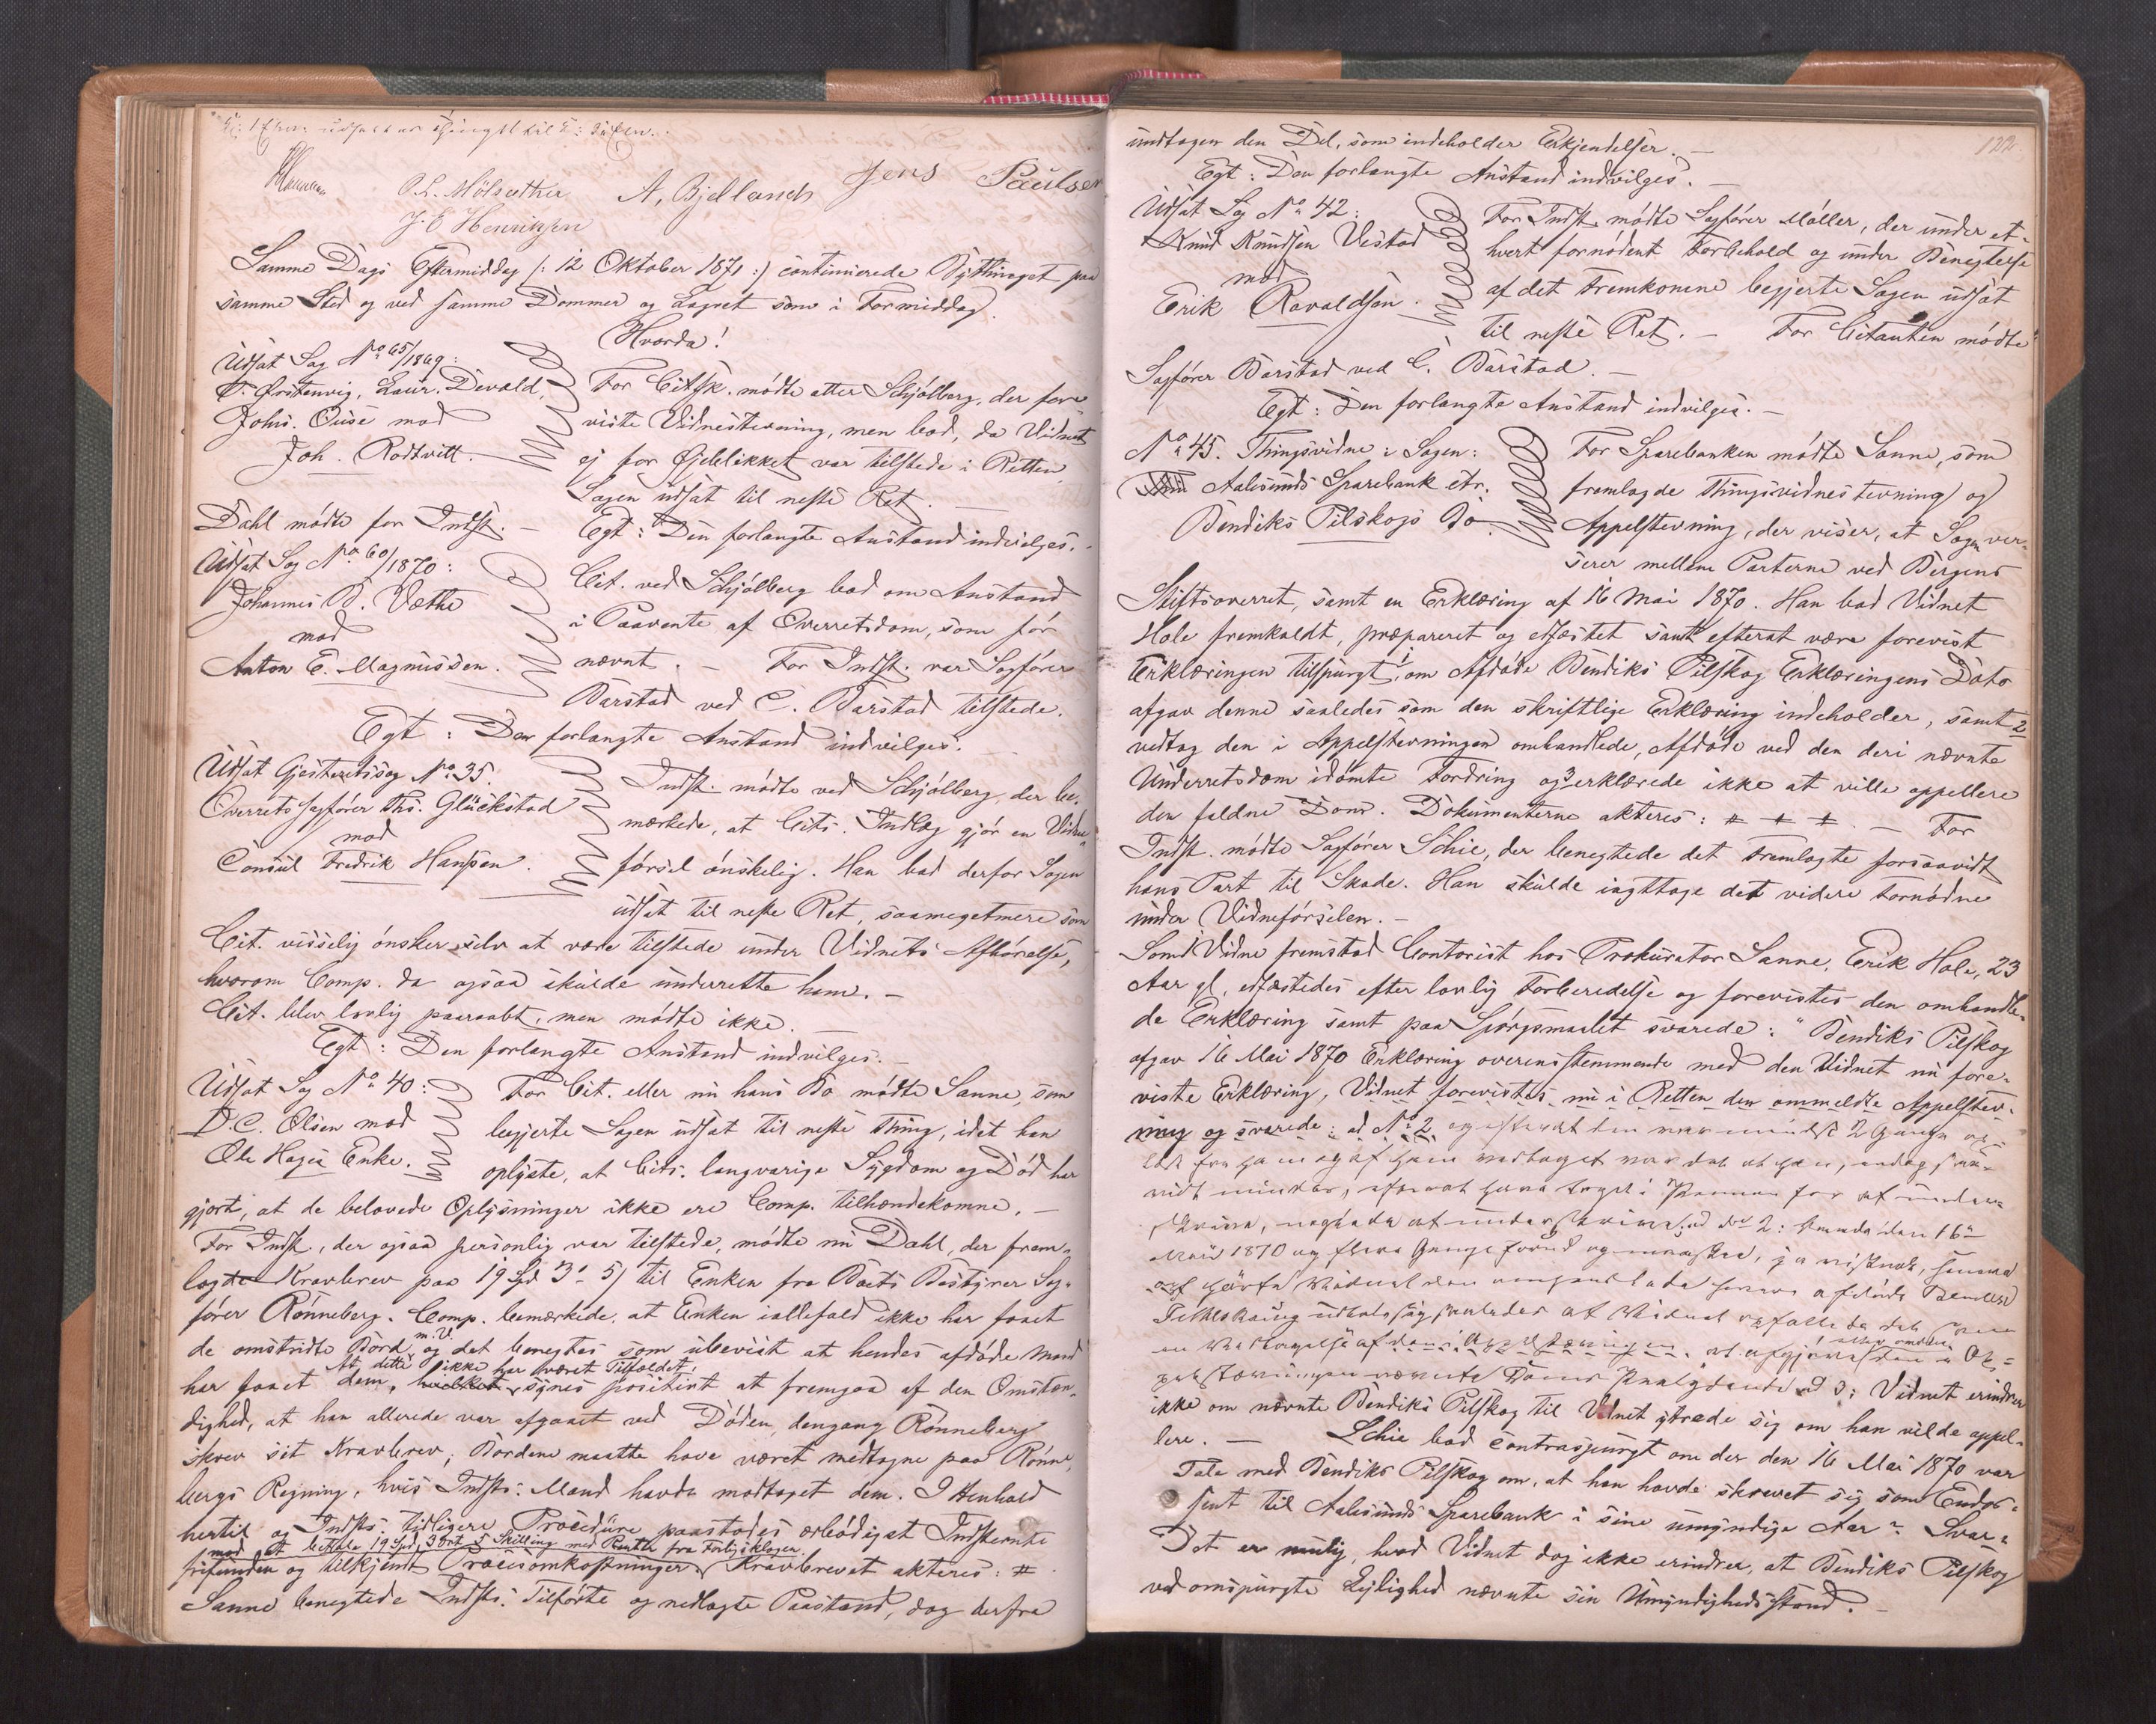 Kl: 1 Efterm: udsattes Thinget til Kl: 3 Efterm:
P. L. Mölsæther A, Bjelland Jens Paulsen
J. E Henriksen
Samme Dags Eftermiddag (: 12 Oktober 1871 :) continuerede Bythinget paa
samme Sted og ved samme Dommer og Lagret som i Formiddag.
Hvorda!
Udsat Sag No 65/1869:
P. Ørstenvig, Laur. Devold,
Johs. Buse mod
Joh. Rodtvitt.
For Citsk. mødte atter Schjølberg, der fore
viste Vidnestevning, men bad, da Vidnet
ej for Øjeblikket var tilstede i Retten
Sagen udsat til neste Ret. —
Dahl mødte for Indst. —
Egt: Den forlangte Anstand indvilges. —
Udsat Sag No 60/1870:
Johannes B. Vatte
mod
Anton E. Magnussen.
Cit. ved Schjølberg bad om Anstand
i Paavente af Overretsdom, som før
nævnt. — For Indst. var Sagfører
Barstad ved C. Barstad tilstede.
Egt: Den forlangte Anstand indvilges. —
Udsat Gjesteretssag No 35.
Overretssagfører Ths. Glückstad
mod
Consul Fredrik Hanssen.
Indst. mødte ved Schjølberg, der be-
mærkede, at Cits. Indlæg gjør en Vidne
førsel ønskelig. Han bad derfor Sagen
udsat til neste Ret, saamegetmere som
Cit. visselig ønsker selv at være tilstede under Vidnets Afhørelse,
hvorom Comp. da ogsaa skulde underrette ham. —
Cit. blev lovlig paaraabt, men mødte ikke. —
Egt: Den forlangte Anstand indvilges. —
Udsat Sag No 40:
D. C. Olsen mod
Ole Hages Enke.
For Cit. eller nu hans Bo mødte Sanne, som
begjerte Sagen udsat til neste Thing, idet han
oplyste, at Cits. langvarige Sygdom og Død har
gjort, at de belovede Oplysninger ikke ere Comp. tilhændekomne. —
For Indst, der ogsaa personlig var tilstede, mødte nu Dahl, der frem-
lagde Kravbrev paa 19 Spd 3 5 til Enken fra Boets Bestyrer Sag-
fører Rønneberg. Comp. bemærkede, at Enken iallefald ikke har faaet
de omstridte Bord m. V. og det benegtes som ubevist at hendes afdøde Mand
har faaet dem, hvilket At dette ikke har været Tilfældet, synes positivt at fremgaa af den Omstæn-
dighed, at han allerede var afgaaet ved Døden, dengang Rønneberg
skrev sit Kravbrev; Bordene maatte have været medtagne paa Rønne
bergs Regning, hvis Indsts. Mand havde modtaget dem. I Henhold
hertil og Indsts. tidligere Procedüre paastodes ærbødigst Indstevnte
mod at betale 19 Spd 3 Ort 5 Skilling med Renter fra Forligsklagen
frifunden og tilkjendt Procesomkostninger. Kravbrevet akteres: #
Sanne benegtede Indsts. Tilførte og nedlagte Paastand, dog derfra
122.
undtagen den Del, som indeholder Erkjendelser. —
Egt: Den forlangte Anstand indvilges. —
Udsat Sag No 42:
Knud Knudsen Vestad
mod
Erik Ravaldsen.
For Indst. mødte Sagfører Møller, der under et-
hvert fornødent Forbehold og under Benegtelse
af det Fremkomne begjerte Sagen udsat
til neste Ret. — For Citanten mødte
Sagfører Barstad ved C. Barstad. —
Egt: Den forlangte Anstand indvilges. —
No 45. Thingsvidne i Sagen:
Aalesunds Sparebank ctr.
Bendiks Pilskogs Bo.
For Sparebanken mødte Sanne, som
fremlagde Thingsvidnestevning og
Appelstevning, der viser, at Sagen ver-
serer mellem Parterne ved Bergens
Stiftsoverret, samt en Erklæring af 16 Mai 1870. Han bad Vidnet
Hole fremkaldt, præpareret og edfæstet samt efterat være forevist
Erklæringen tilspurgt, 1 om Afdøde Bendiks Pilskog Erklæringens Dato
afgav denne saaledes som den skriftlige Erklæring indeholder, samt 2
vedtog den i Appelstevningen omhandlede, Afdøde ved den deri nævnte
Underretsdom idømte Fordring og 3 erklærede ikke at ville appellere
den faldne Dom. Dokumenterne akteres: # # #. — For
Indst. mødte Sagfører Schie, der benegtede det Fremlagte forsaavidt
hans Part til Skade. Han skulde iagttage det videre Fornødne
under Vidneførselen. —
Som Vidne fremstod Contorist hos Prokurator Sanne, Erik Hole, 23
Aar gl, edfæstedes efter lovlig Forberedelse og forevistes den omhandle-
de Erklæring samt paa Spørgsmaalet svarede: "Bendiks Pilskog
afgav 16 Mai 1870 Erklæring overensstemmende med den Vidnet nu fore-
viste Erklæring, Vidnet forevistes nu i Retten den ommeldte Appelstev-
ning og svarede: ad No 2 og efterat den var mindst 2 Gange op-
læst for ham og af ham vedtaget var det at han, endog saa-
vidt mindes, efterat have taget i Pennen for at under-
skrive, negtede at underskrive; ad No 2: baade den 16de
Mai 1870 og flere Gange forud
ikke om nævnte Bendiks Pilskog til Vidnet ytrede sig om han vilde appel-
lere. — Schie bad contraspurgt om der den 16 Mai 1870 var
Tale med Bendiks Pilskog om, at han havde skrevet sig som Endos-
sent til Aalesunds Sparebank i sine umyndige Aar? Svar:
Det er mulig, hvad Vidnet dog ikke erindrer, at Bendiks Pilskog
ved omspurgte Lejlighed nævnte sin Umyndighedsstand. —